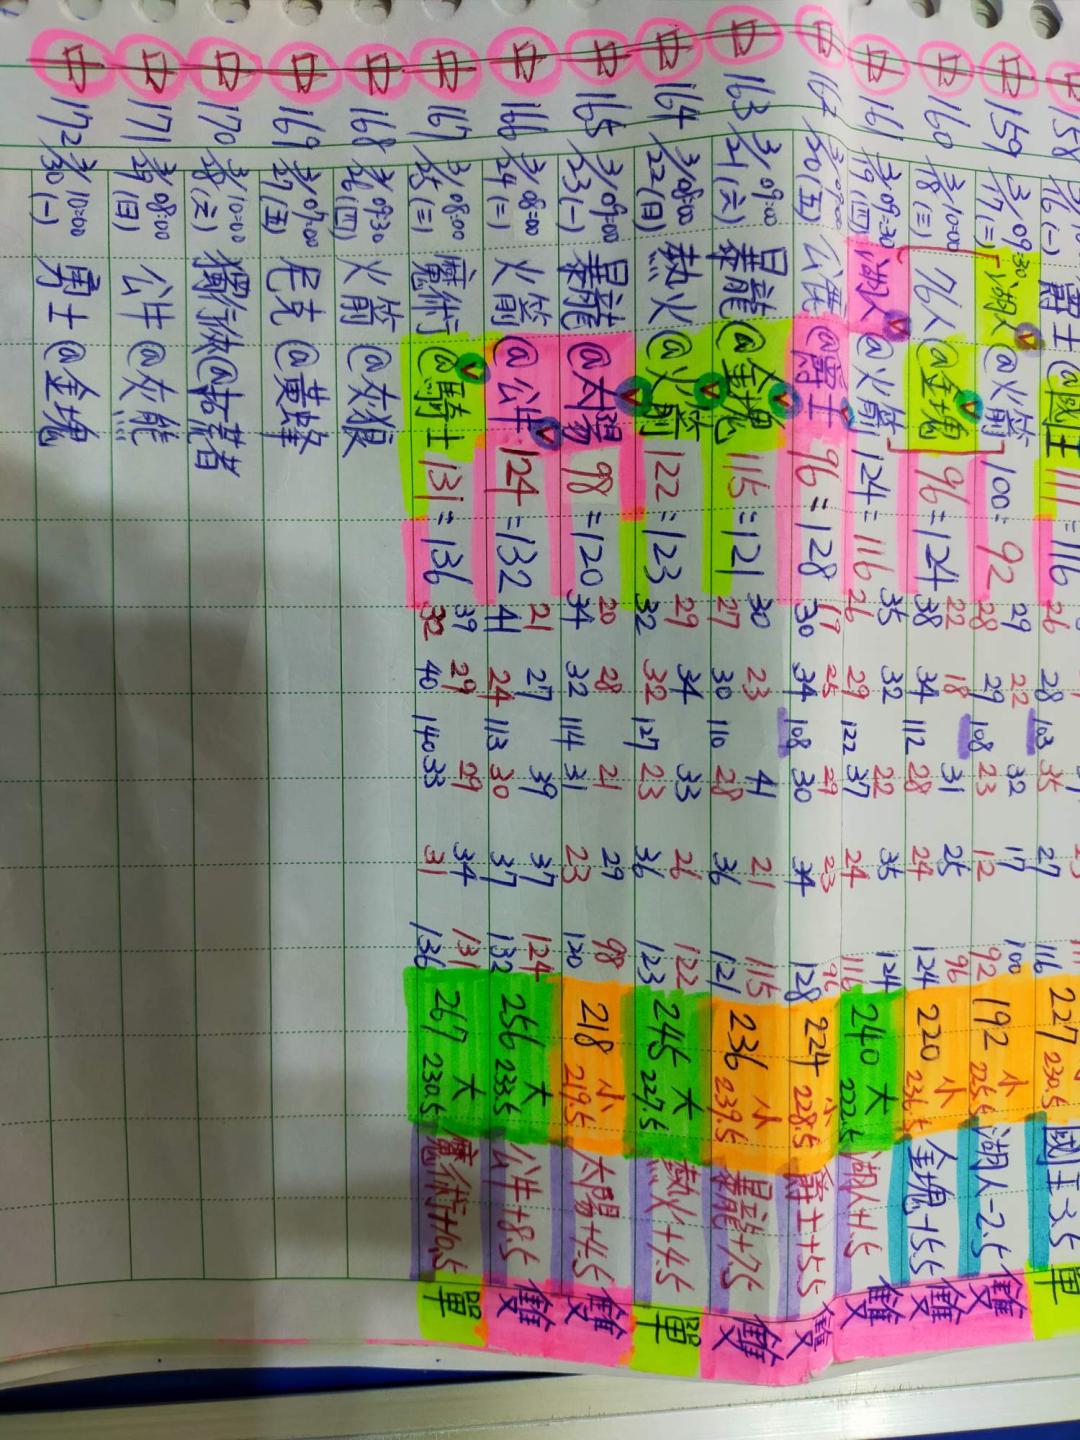 158 3/16(一) 爵士@國王 111=116 26 28 103 35 27 116 227 230.5 國王-3.5 單
中 159 3/17(二) 09:30 湖人@火箭 100=92 29 28 22 29 108 32 23 17 12 100 92 192 小 225.5 湖人-2.5 雙
中 160 3/18(三) 10:00 76人@金塊 96=124 22 38 18 34 112 31 28 25 24 96 124 220 小 236.5 金塊+15.5 雙
中 161 3/19(四) 09:30 湖人@火箭 124=116 35 26 32 29 122 22 37 35 24 124 116 240 大 222.5 湖人+1.5 雙
中 162 3/20(五) 09:00 公鹿@爵士 96=128 17 30 25 34 108 29 30 23 34 96 128 224 小 228.5 爵士+5.5 雙
中 163 3/21(六) 09:00 暴龍@金塊 115=121 30 27 23 30 110 41 28 21 36 115 121 236 小 239.5 暴龍+7.5 雙
中 164 3/22(日) 08:00 熱火@火箭 122=123 29 32 34 32 127 33 23 26 36 122 123 245 大 227.5 熱火+4.5 單
中 165 3/23(一) 09:00 暴龍@太陽 98=120 20 34 28 32 114 21 31 29 23 98 120 218 小 219.5 太陽+4.5 雙
中 166 3/24(二) 08:00 火箭@公牛 124=132 21 41 27 24 113 39 30 37 37 124 132 256 大 233.5 公牛+8.5 雙
中 167 3/25(三) 08:00 魔術@騎士 131=136 39 32 29 40 140 29 33 34 31 131 136 267 大 230.5 魔術+10.5 單
中 168 3/26(四) 09:30 火箭@灰狼
中 169 3/27(五) 07:00 尼克@黃蜂
中 170 3/28(六) 10:00 獨行俠@拓荒者
中 171 3/29(日) 08:00 公牛@灰熊
中 172 3/30(一) 10:00 勇士@金塊